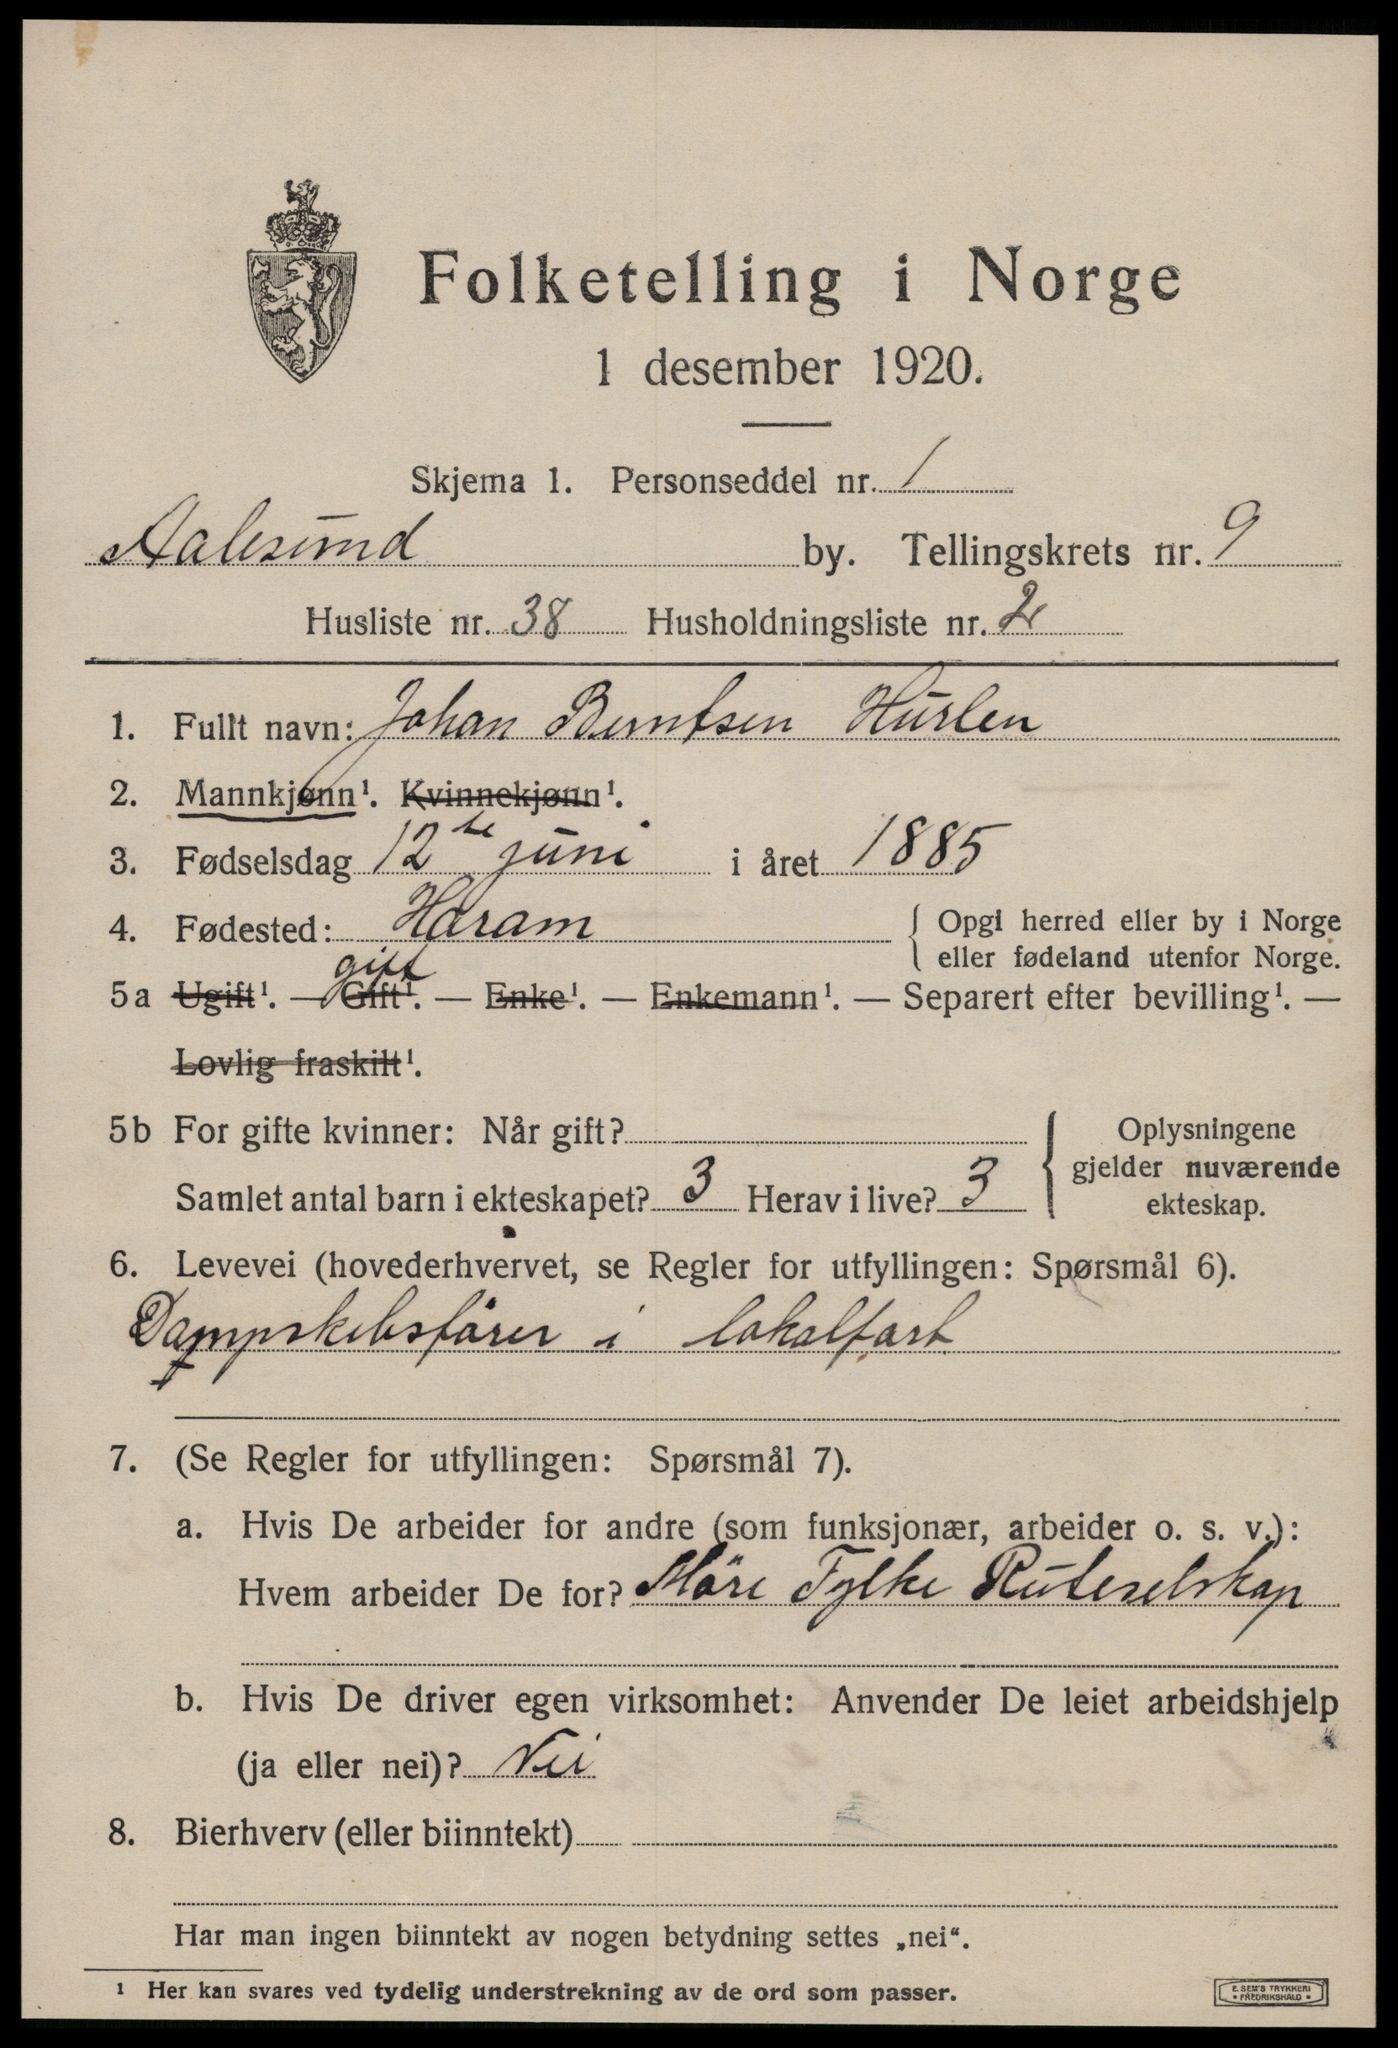 Folketelling i Norge
1 desember 1920.
Skjema 1. Personseddel nr. 1
Aalesund by. Tellingskrets nr. 9
Husliste nr. 38 Husholdningsliste nr. 2
1. Fullt navn: Johan Berntsen Hurlen
2. Mannkjønn¹. Kvinnekjønn¹.
3. Fødselsdag 12te juni i året 1885
4. Fødested: Haram { Opgi herred eller by i Norge
eller fødeland utenfor Norge.
gift
5a Ugift¹. — Gift¹. — Enke¹. — Enkemann¹. — Separert efter bevilling¹. —
Lovlig fraskilt¹.
5b For gifte kvinner: Når gift?
Samlet antal barn i ekteskapet? 3 Herav i live? 3
Oplysningene
gjelder nuværende
ekteskap.
6. Levevei (hovederhvervet, se Regler for utfyllingen: Spørsmål 6).
Dampskibsförer i lokalfart
7. (Se Regler for utfyllingen: Spørsmål 7).
a. Hvis De arbeider for andre (som funksjonær, arbeider o. s. v.):
Hvem arbeider De for? Möre Fylke Ruteselskap
b. Hvis De driver egen virksomhet: Anvender De leiet arbeidshjelp
(ja eller nei)? Nei
8. Bierhverv (eller biinntekt)
Har man ingen biinntekt av nogen betydning settes „nei“.
¹ Her kan svares ved tydelig understrekning av de ord som passer.
E. SEM'S TRYKKERI
• FREDRIKSHALD •